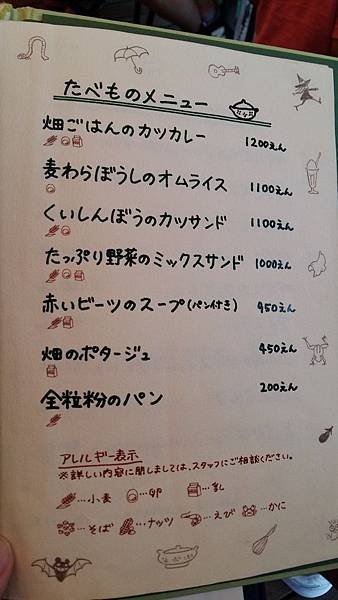 たべものメニュー
畑ごはんのカツカレー 1200えん
麦わらぼうしのオムライス 1100えん
くいしんぼうのカツサンド 1100えん
たっぷり野菜のミックスサンド 1000えん
赤いビーツのスープ(パン付き) 950えん
畑のポタージュ 450えん
全粒粉のパン 200えん
アレルギー表示
※詳しい内容に関しましては、スタッフにご相談ください。
…小麦 …卵 …乳
…そば …ナッツ …えび …かに